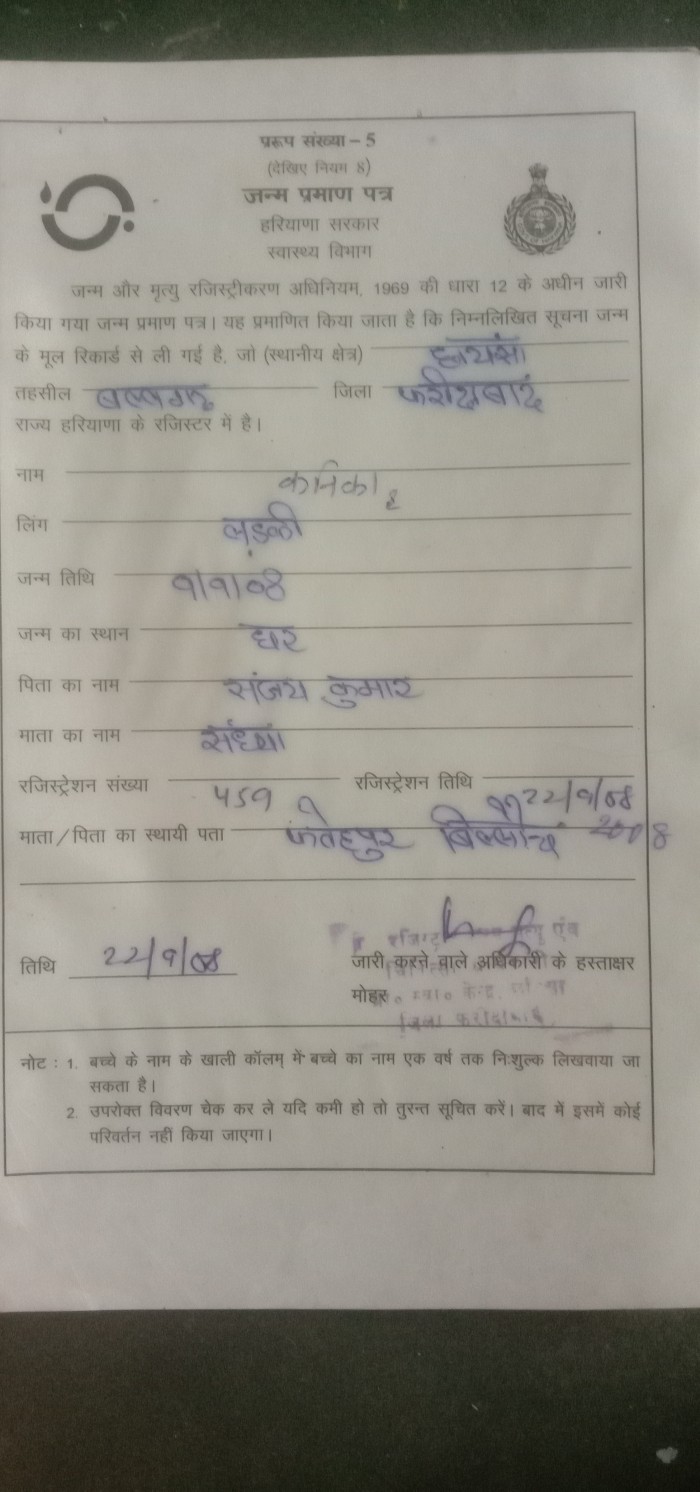 प्ररूप संख्या – 5
(देखिए नियम 8)
जन्म प्रमाण पत्र
हरियाणा सरकार
स्वास्थ्य विभाग
जन्म और मृत्यु रजिस्ट्रीकरण अधिनियम, 1969 की धारा 12 के अधीन जारी
किया गया जन्म प्रमाण पत्र। यह प्रमाणित किया जाता है कि निम्नलिखित सूचना जन्म
के मूल रिकार्ड से ली गई है, जो (स्थानीय क्षेत्र) छायंसा
तहसील बल्लगढ़ जिला फरीदाबाद
राज्य हरियाणा के रजिस्टर में है।
नाम कनिका
लिंग लड़की
जन्म तिथि ९/९/०8
जन्म का स्थान घर
पिता का नाम संजय कुमार
माता का नाम संध्या
रजिस्ट्रेशन संख्या रजिस्ट्रेशन तिथि 22/9/08
माता / पिता का स्थायी पता फतेहपुर बिल्लौच 2008
तिथि 22/9/08
जारी करने वाले अधिकारी के हस्ताक्षर
मोहर
जिला फरीदाबाद
नोट : 1. बच्चे के नाम के खाली कॉलम् में बच्चे का नाम एक वर्ष तक निःशुल्क लिखवाया जा
सकता है।
2. उपरोक्त विवरण चेक कर ले यदि कमी हो तो तुरन्त सूचित करें। बाद में इसमें कोई
परिवर्तन नहीं किया जाएगा।